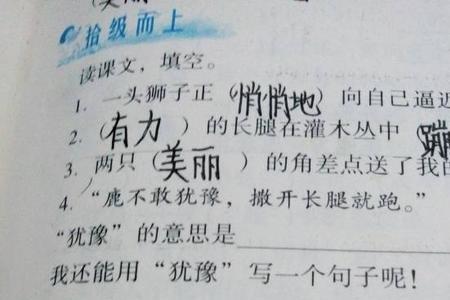 拾级而上
读课文，填空。
1. 一头狮子正（悄悄地）向自己逼近
2.（有力）的长腿在灌木丛中（蹦
3. 两只（美丽）的角差点送了我
4. “鹿不敢犹豫，撒开长腿就跑。”
“犹豫”的意思是
我还能用“犹豫”写一个句子呢！